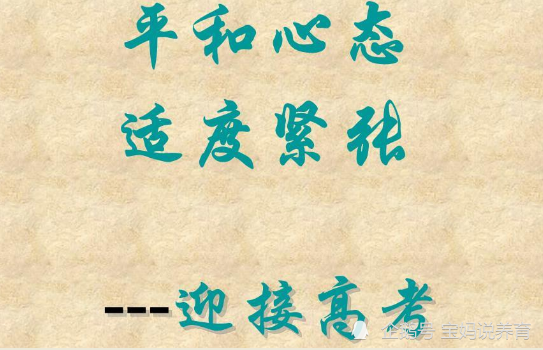 平和心态
适度紧张
---迎接高考
企鹅号 宝妈说养育